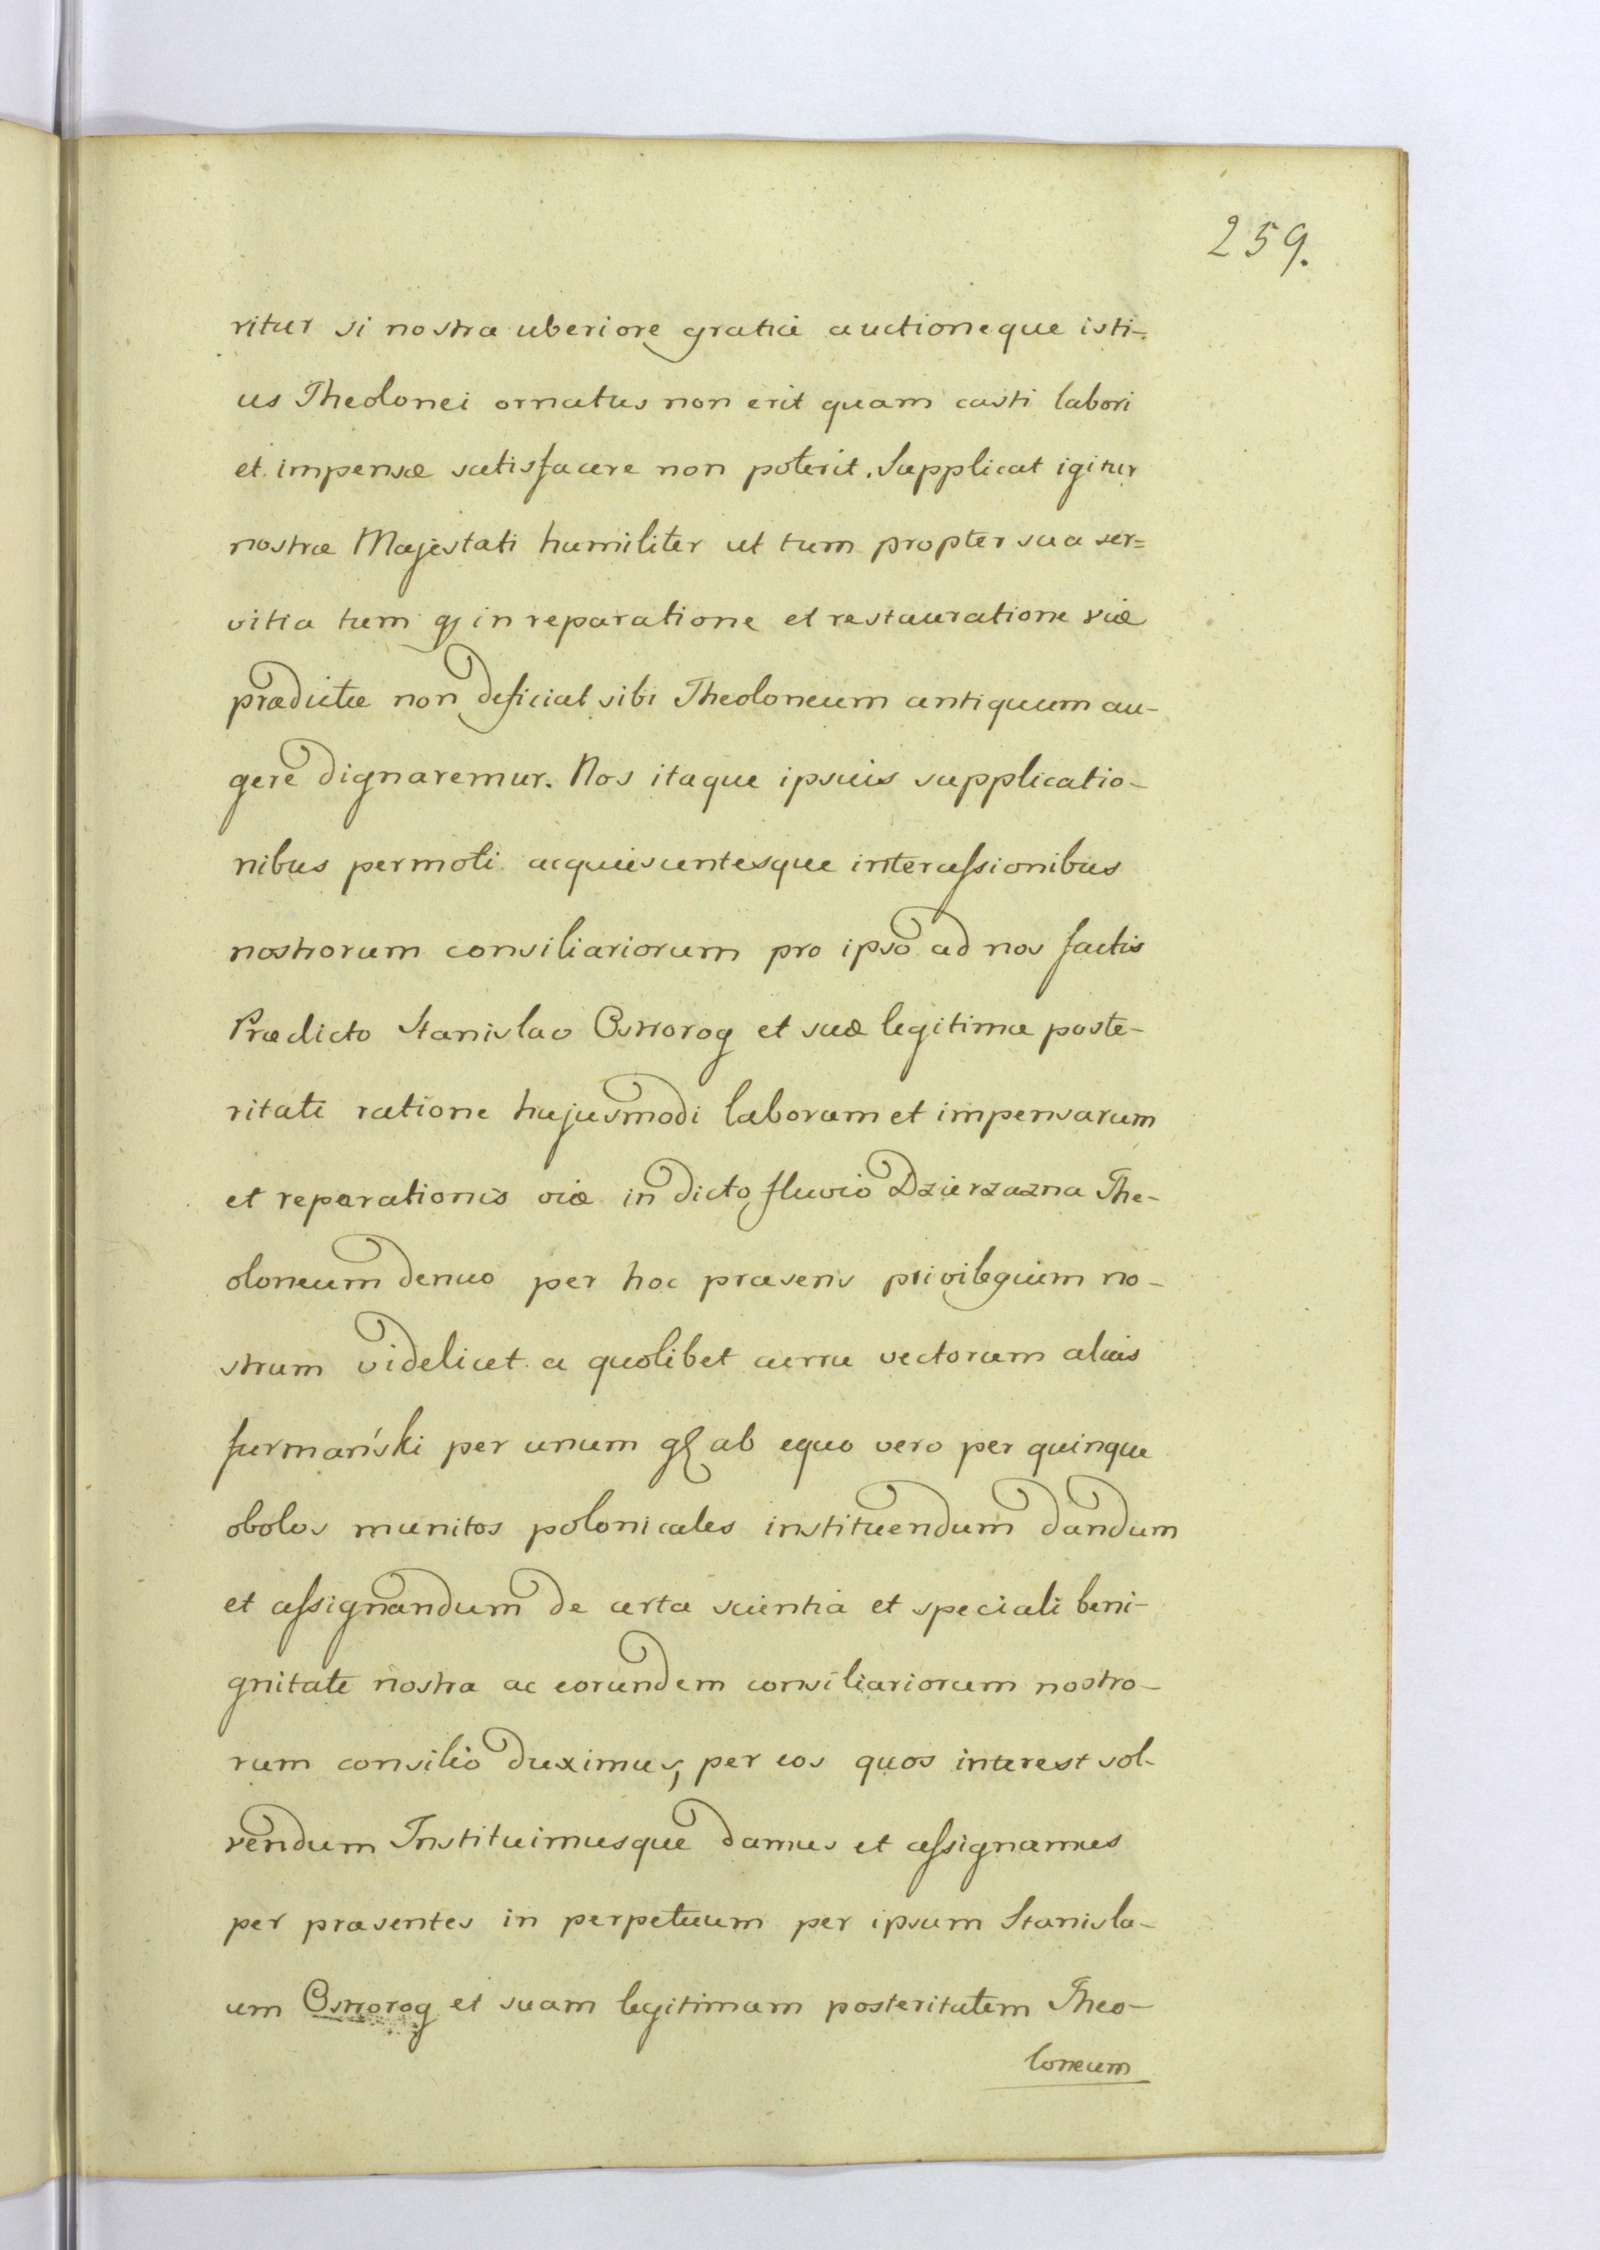 259.
ritur si nostra uberiore gratia auctioneque isti-
us Theolonei ornatus non erit quam casti labori
et impensæ satisfacere non poterit. Supplicat igitur
nostræ Majestati humiliter ut tum propter sua ser=
vitia tum in reparatione et restauratione viæ
prædictæ non deficiat sibi Theoloneum antiquum au-
gere dignaremur. Nos itaque ipsius supplicatio-
nibus permoti acquiescentesque intercessionibus
nostrorum consiliariorum pro ipso ad nos factis
Prædicto Stanislao Ostrorog et suæ legitimæ poste-
ritati ratione hujusmodi laborum et impensarum
et reparationis viæ in dicto fluvio Dzierzazna The-
oloneum denuo per hoc præsens privilegium no-
strum videlicet a quolibet curru vectorum alias
furmański per unum ab equo vero per quinque
obolos munitos polonicales instituendum dandum
et assignandum de certa scientia et speciali beni-
gnitate nostra ac eorundem consiliariorum nostro-
rum consilio duximus, per eos quos interest sol-
vendum Instituimusque damus et assignamus
per præsentes in perpetuum per ipsum Stanisla-
um Ostrorog et suam legitimam posteritatem Theo-
loneum